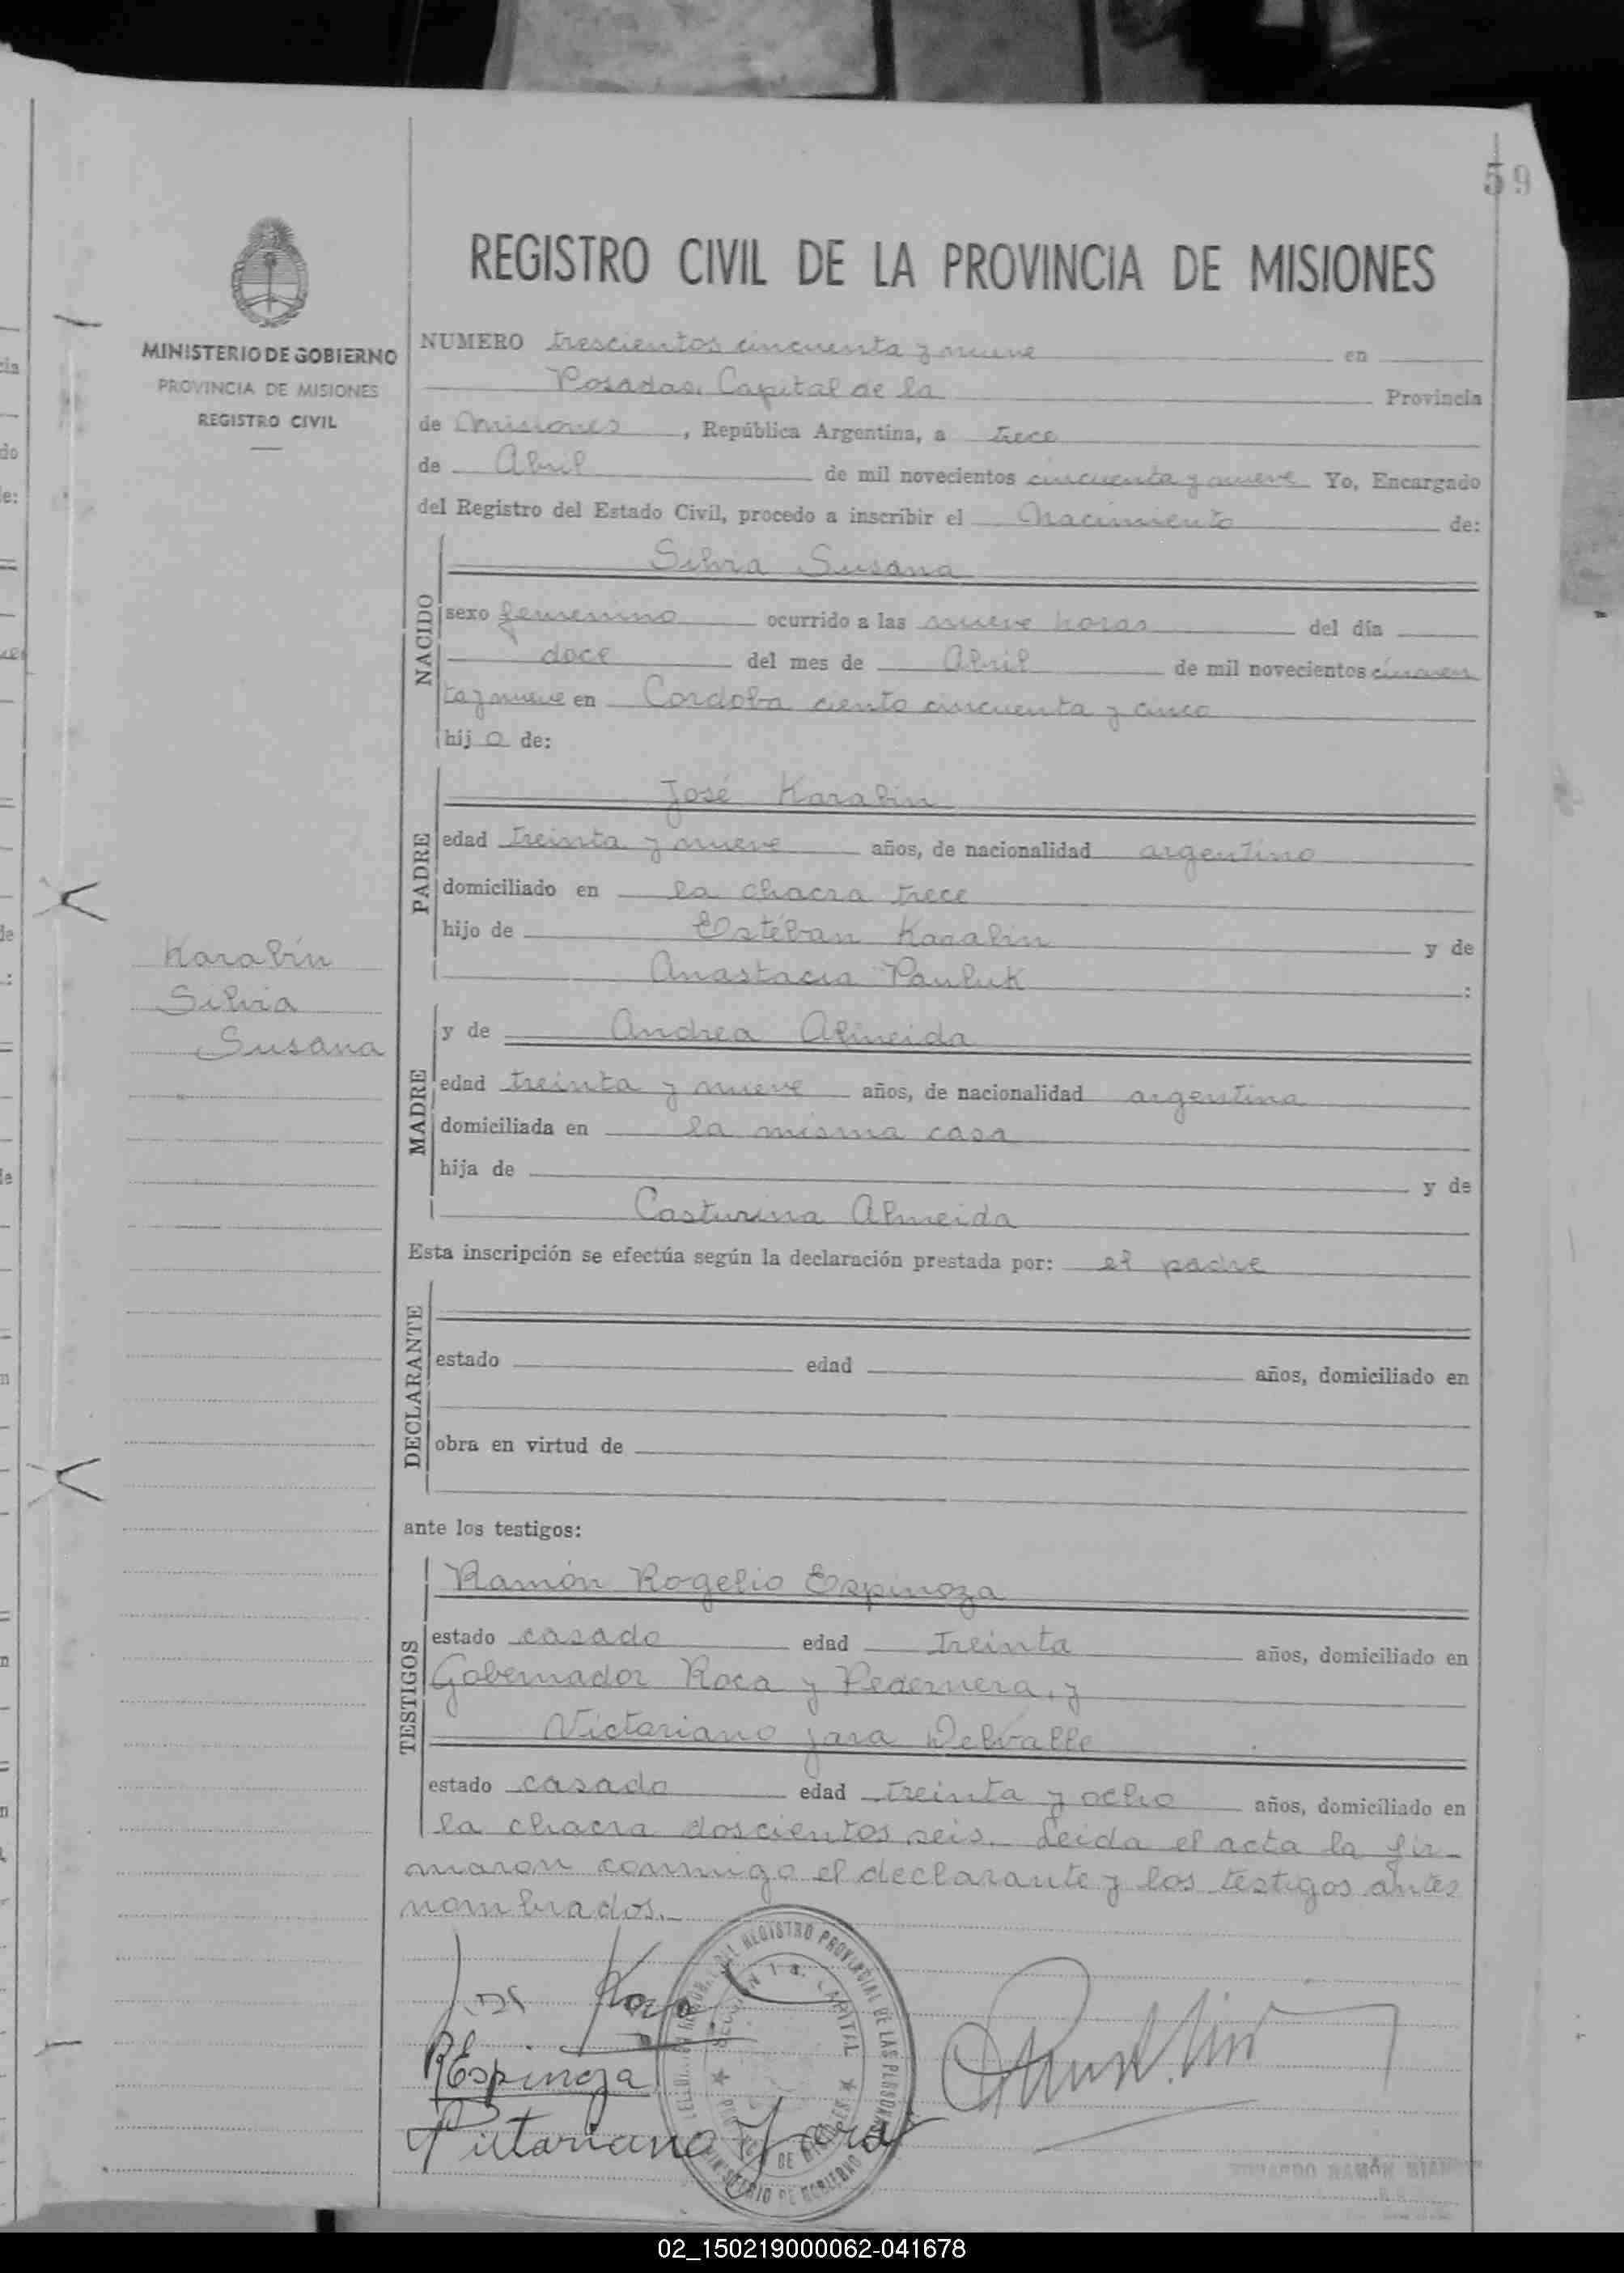 59
REGISTRO CIVIL DE LA PROVINCIA DE MISIONES
MINISTERIO DE GOBIERNO
PROVINCIA DE MISIONES
REGISTRO CIVIL
NUMERO trescientos cincuenta y nueve en
Posadas, Capital de la Provincia
de Misiones, República Argentina, a trece
de Abril de mil novecientos cincuenta y nueve Yo, Encargado
del Registro del Estado Civil, procedo a inscribir el Nacimiento de:
NACIDO
Silvia Susana
sexo femenino ocurrido a las nueve horas del día
doce del mes de Abril de mil novecientos cincuen
ta y nueve en Cordoba ciento cincuenta y cinco
hij a de:
PADRE
José Karabin
edad treinta y nueve años, de nacionalidad argentino
domiciliado en la chacra trece
hijo de Estéban Karabin y de
Anastacia Pauluk :
Karabín
Silvia
Susana
MADRE
y de Andrea Almeida
edad treinta y nueve años, de nacionalidad argentina
domiciliada en la misma casa
hija de y de
Casturina Almeida
Esta inscripción se efectúa según la declaración prestada por: el padre
DECLARANTE
estado edad años, domiciliado en
obra en virtud de
ante los testigos:
TESTIGOS
Ramón Rogelio Espinoza
estado casado edad treinta años, domiciliado en
Gobernador Roca y Pedernera, y
Victoriano Jara Delvalle
estado casado edad treinta y ocho años, domiciliado en
la chacra doscientos seis. Leida el acta la fir-
maron conmigo el declarante y los testigos antes
nombrados.
REGISTRO PROVINCIAL DE LAS PERSONAS
CAPITAL
MINISTERIO DE GOBIERNO
REspinoza
Vitariano Jara
RAMÓN
02_150219000062-041678